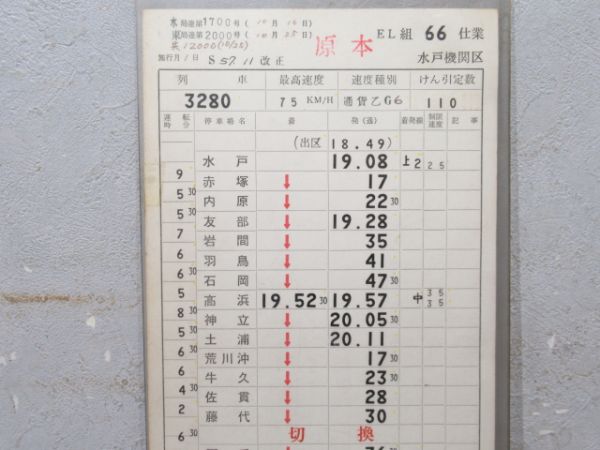 水局達第1700号(10月16日)
東局達第2000号(10月25日)
施行月/日 S57.11改正 原本 EL組 66 仕業
水戸機関区
列車 最高速度 速度種別 けん引定数
3280 75KM/H 通貨乙G6 110
運転時分 停車場名 着 発(通) 着発線 制限速度 記事
(出区 18.49)
水戸 19.08 上2 25
9
赤塚 ↓ 17
5 30
内原 ↓ 22 30
5 30
友部 ↓ 19.28
7
岩間 ↓ 35
6
羽鳥 ↓ 41
6 30
石岡 ↓ 47 30
5
高浜 19.52 30 19.57 中 35 35
8 30
神立 ↓ 20.05 30
5 30
土浦 ↓ 20.11
6 30
荒川沖 ↓ 17 30
6
牛久 ↓ 23 30
4 30
佐貫 ↓ 28
2
藤代 ↓ 30
切換
6 30